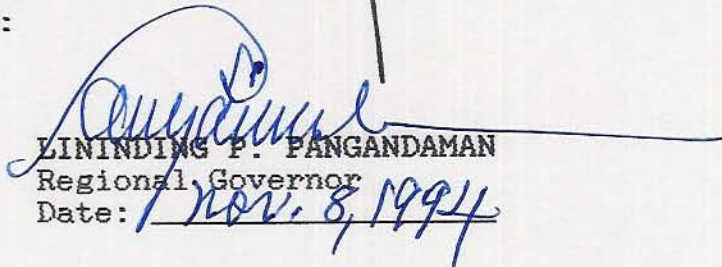 :
LININDING P. PANGANDAMAN
Regional Governor
Date: Nov. 8, 1994